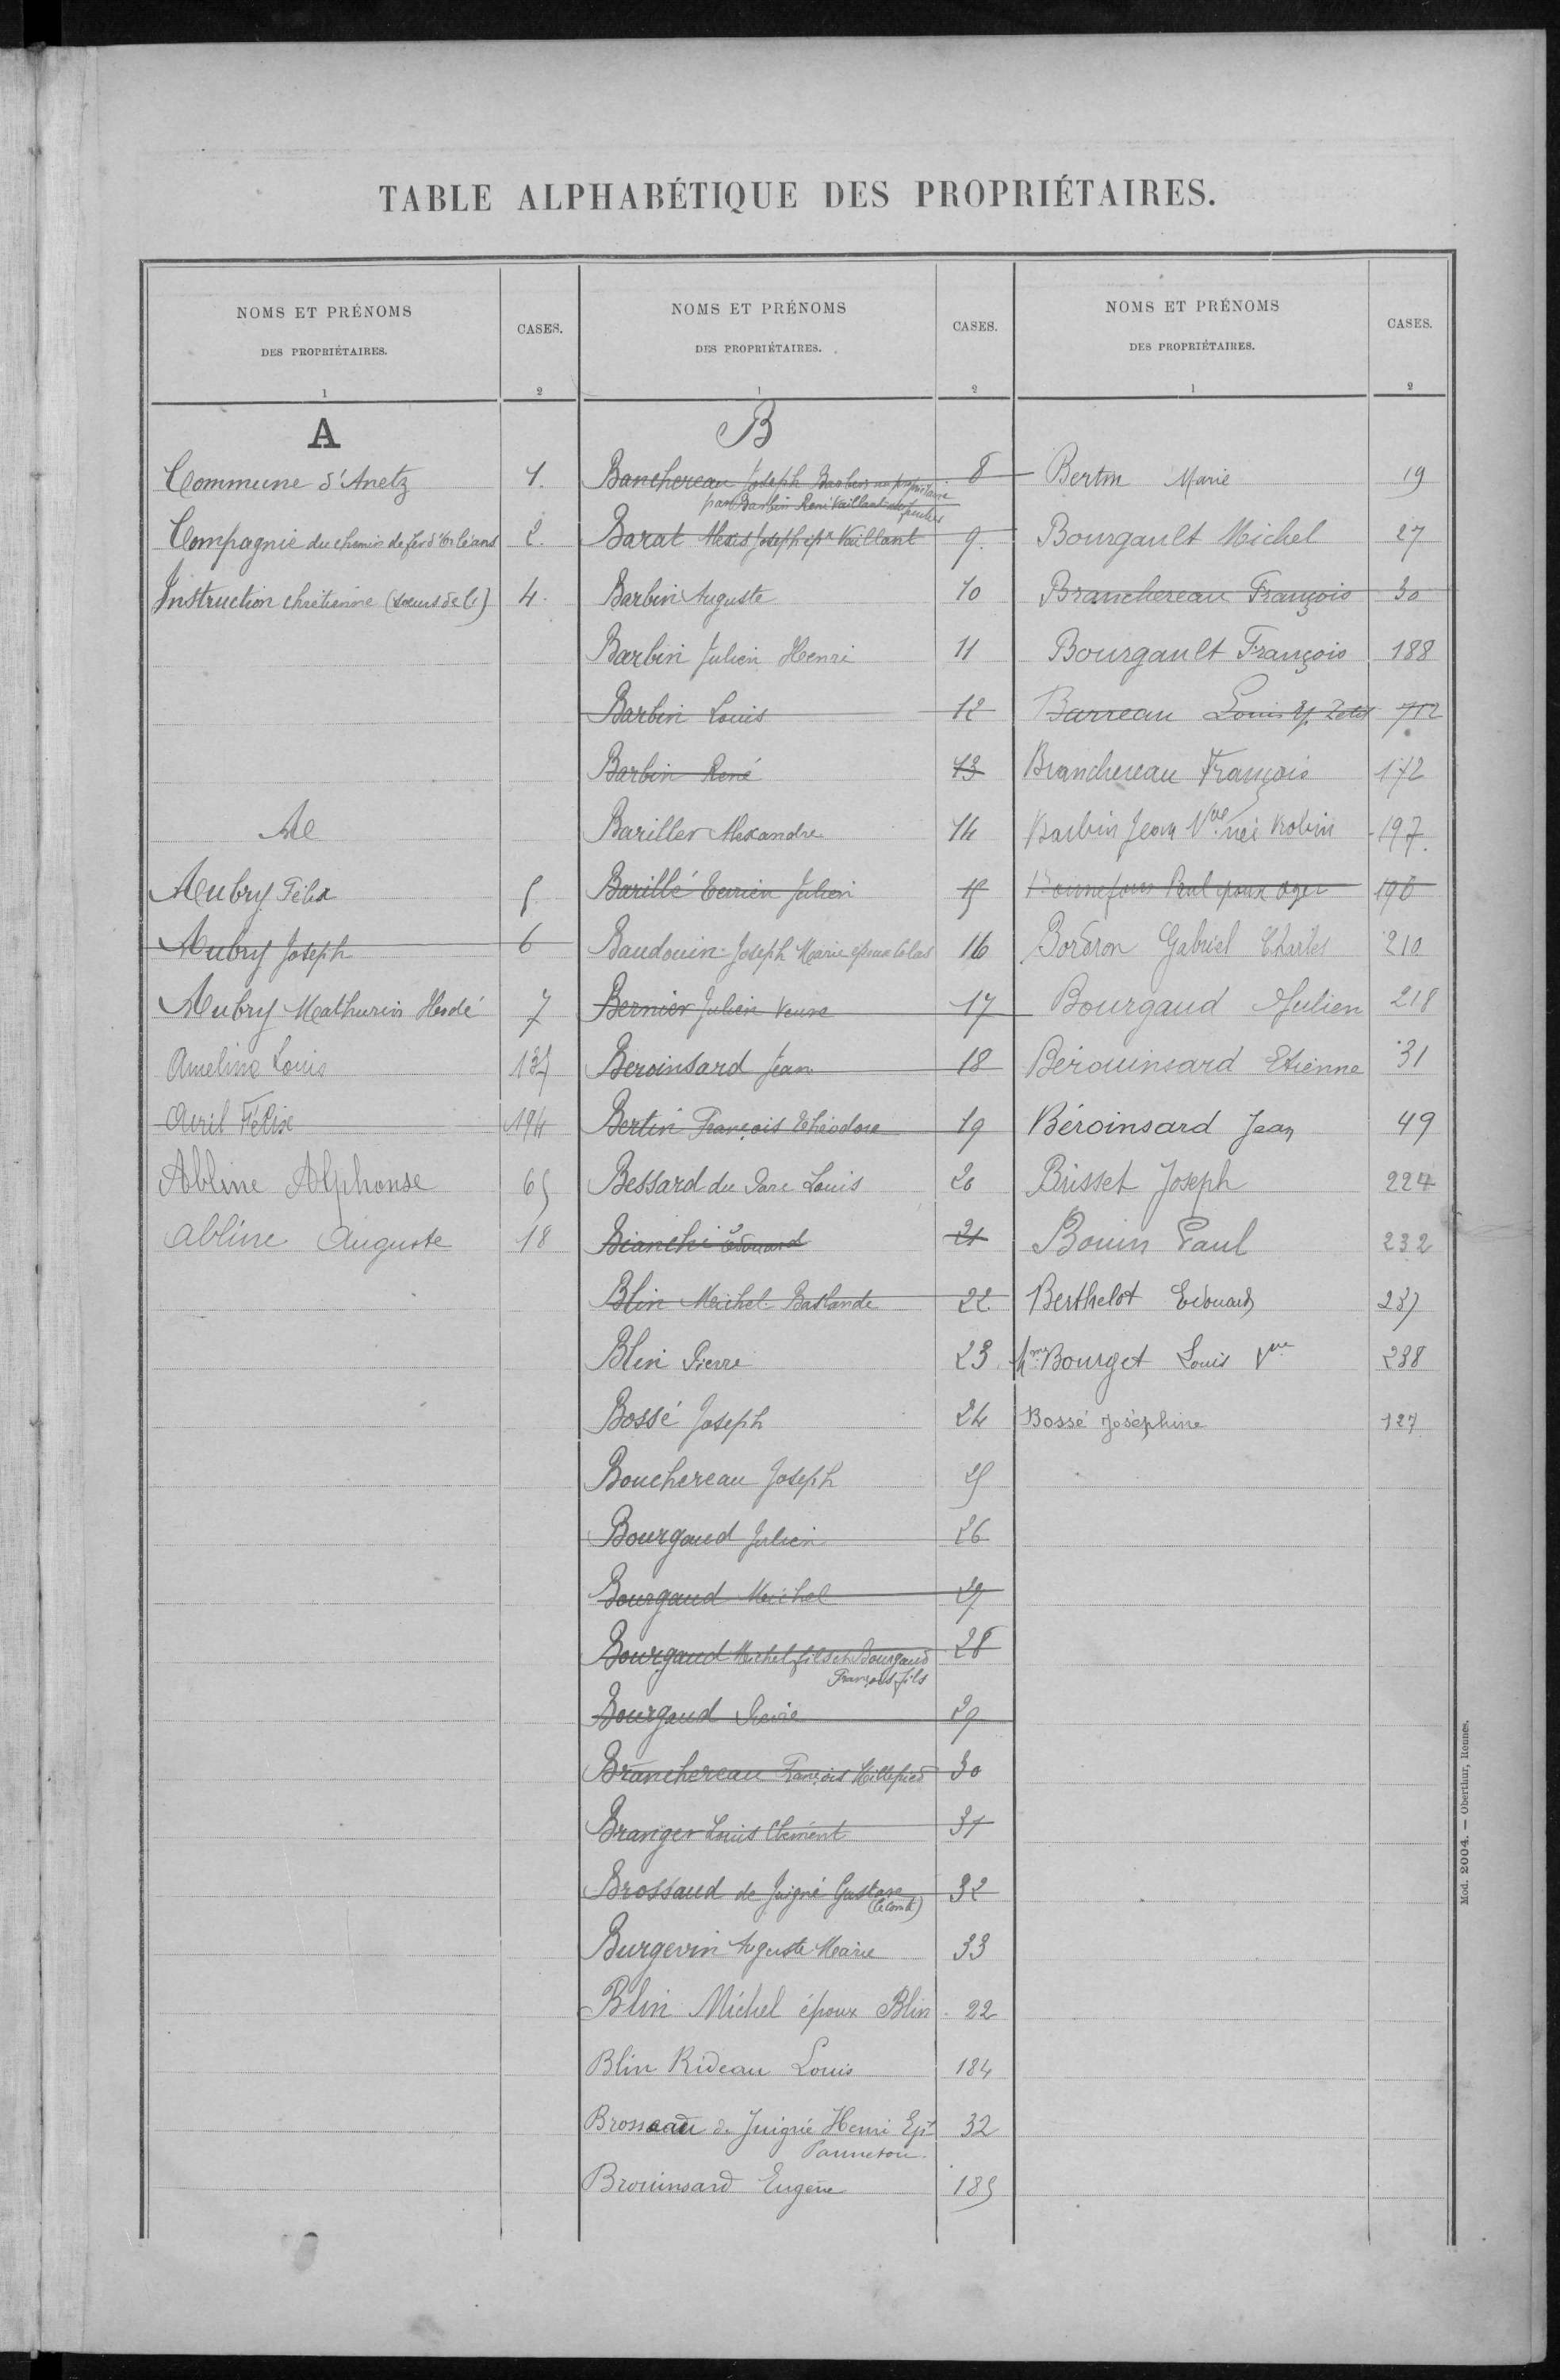 TABLE ALPHABÉTIQUE DES PROPRIÉTAIRES.
NOMS ET PRÉNOMS
DES PROPRIÉTAIRES.
1
CASES.
2
A
Commune d'Anetz 1.
Compagnie du chemin de fer d'Orléans 2.
Instruction chrétienne (sœurs de l') 4.
Aubry Félix 5
Aubry Joseph 6
Aubry Mathurin Hodé 7
Amelin Louis 135
Avril Félix 194
Abline Alphonse 65
Abline Auguste 18
NOMS ET PRÉNOMS
DES PROPRIÉTAIRES.
1
CASES.
2
B
Banchereau Joseph Barbin nu propriétaire 8
par Barbin René Vaillant
Barat Alexis Joseph epx Vaillant 9.
Barbin Auguste 10
Barbin Julien Henri 11
Barbin Louis 12
Barbin René 13
Bariller Alexandre 14
Barillé Terrien Julien 15
Baudouin Joseph Marie époux Colas 16
Bernier Julien Veuve 17
Beroinsard Jean 18
Bertin François Théodore 19
Bessard du Parc Louis 20
Bianchi Edouard 21
Blin Michel Baslande 22
Blin Pierre 23
Bossé Joseph 24
Bouchereau Joseph 25
Bourgaud Julien 26
Bourgaud Michel 27
Bourgaud Michel fils et Bourgaud 28
François fils
Bourgaud Pierre 29
Branchereau François Millepied 30
Branger Louis Clément 31
Brossaud de Juigné Gustave 32
(le comte)
Burgevin Auguste Marie 33
Blin Michel époux Blin 22
Blin Rideau Louis 184
Brossaud de Juigné Henri Ep. 32
Panneton
Brouinsard Eugène 185
NOMS ET PRÉNOMS
DES PROPRIÉTAIRES.
1
CASES.
2
Bertin Marie 19
Bourgault Michel 27
Branchereau François 30
Bourgault François 188
Barreau Louis 712
Branchereau François 172
Barbin Jean Vve née Robin 197.
Bonnefous Paul époux Oger 198
Bordron Gabriel Charles 210
Bourgaud Julien 218
Bérouinsard Etienne 31
Béroinsard Jean 49
Brisset Joseph 224
Bouin Paul 232
Berthelot Edouard 237
Mme Bourget Louis Vve 238
Bossé Joséphine 127
Mod. 2004. — Oberthur, Rennes.